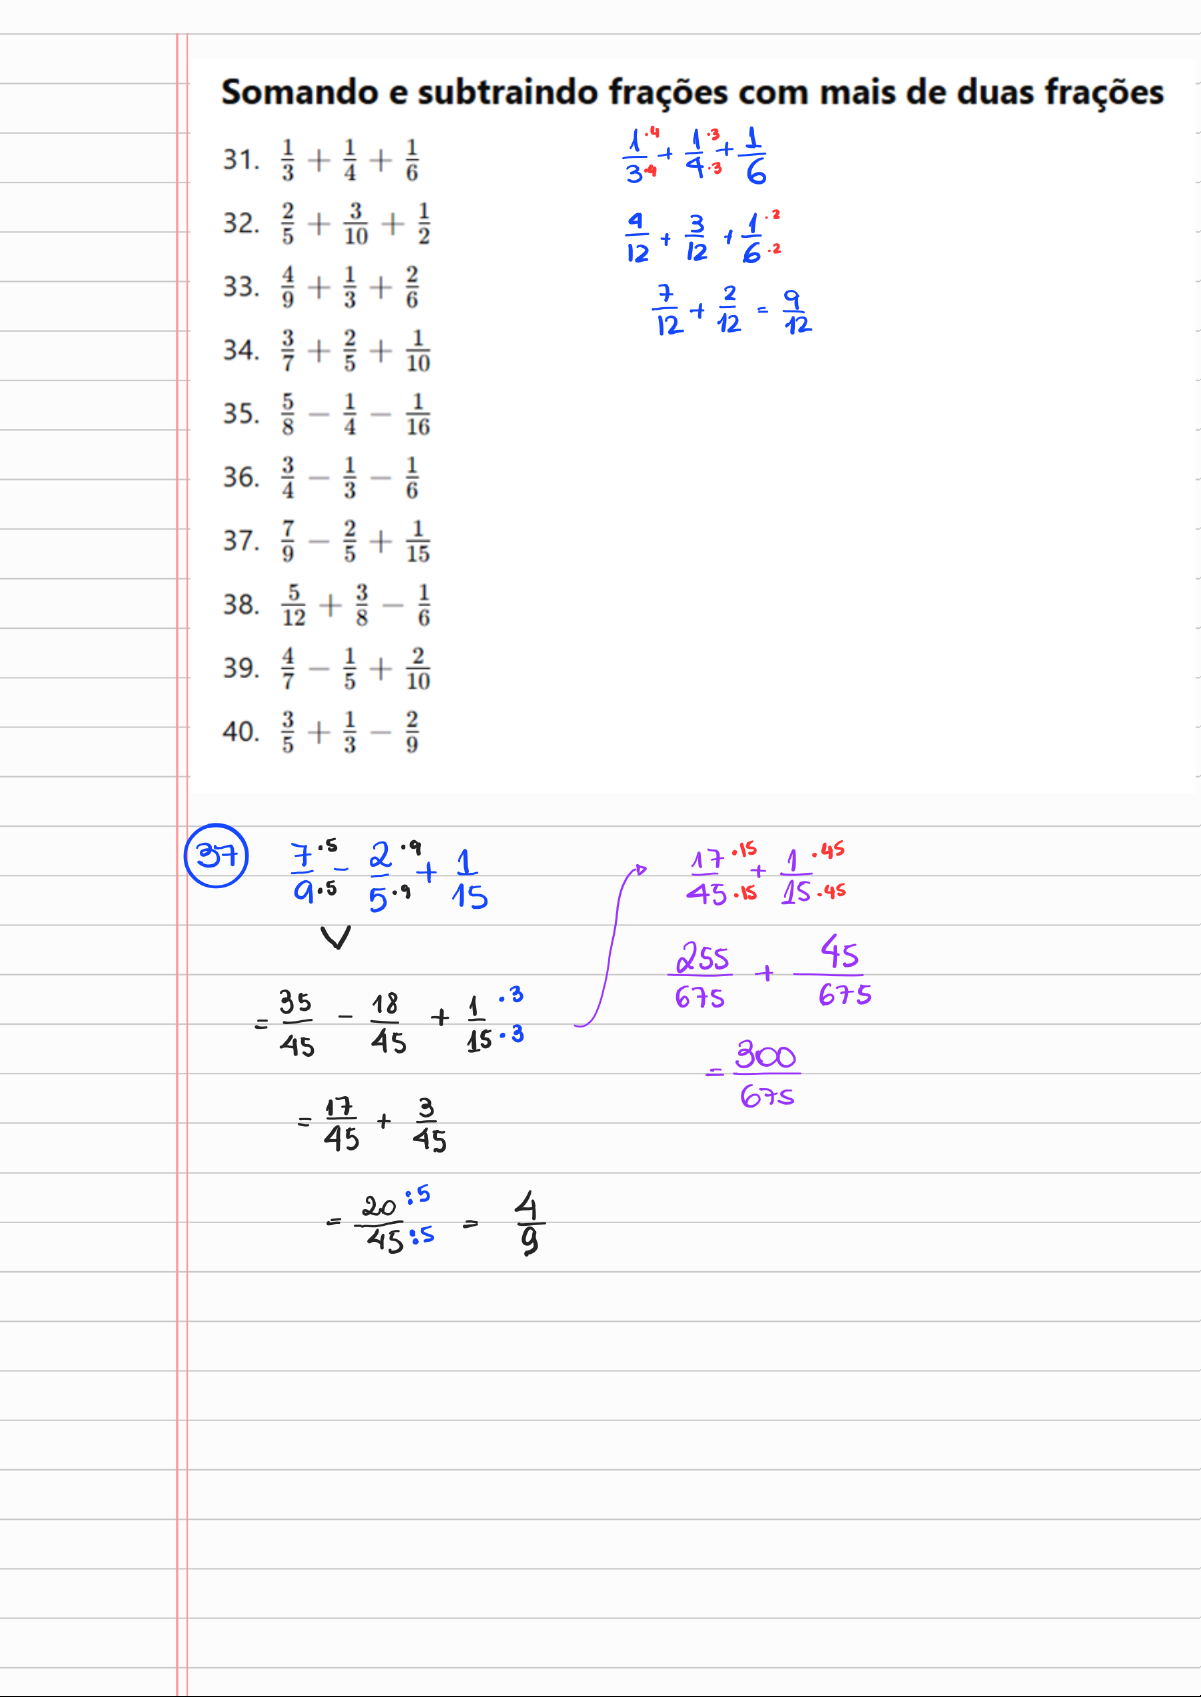 Somando e subtraindo frações com mais de duas frações
31. 1/3 + 1/4 + 1/6
32. 2/5 + 3/10 + 1/2
33. 4/9 + 1/3 + 2/6
34. 3/7 + 2/5 + 1/10
35. 5/8 − 1/4 − 1/16
36. 3/4 − 1/3 − 1/6
37. 7/9 − 2/5 + 1/15
38. 5/12 + 3/8 − 1/6
39. 4/7 − 1/5 + 2/10
40. 3/5 + 1/3 − 2/9
1·4/3·4 + 1·3/4·3 + 1/6
4/12 + 3/12 + 1·2/6·2
7/12 + 2/12 = 9/12
37 7·5/9·5 − 2·9/5·9 + 1/15
= 35/45 − 18/45 + 1·3/15·3
= 17/45 + 3/45
= 20:5/45:5 = 4/9
17·15/45·15 + 1·45/15·45
255/675 + 45/675
= 300/675